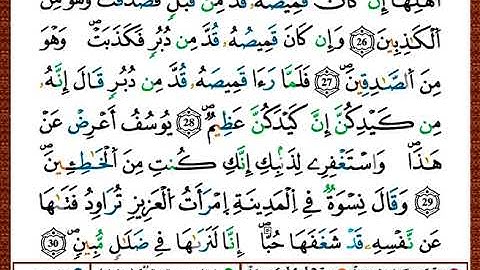 أَهْلِهَا إِن كَانَ قَمِيصُهُۥ قُدَّ مِن قُبُلٍ فَصَدَقَتْ وَهُوَ مِنَ
ٱلْكَٰذِبِينَ ۝26 وَإِن كَانَ قَمِيصُهُۥ قُدَّ مِن دُبُرٍ فَكَذَبَتْ وَهُوَ
مِنَ ٱلصَّٰدِقِينَ ۝27 فَلَمَّا رَءَا قَمِيصَهُۥ قُدَّ مِن دُبُرٍ قَالَ إِنَّهُۥ
مِن كَيْدِكُنَّ إِنَّ كَيْدَكُنَّ عَظِيمٌ ۝28 يُوسُفُ أَعْرِضْ عَنْ
هَٰذَا وَٱسْتَغْفِرِے لِذَنۢبِكِ إِنَّكِ كُنتِ مِنَ ٱلْخَاطِـِٕينَ
۝29 وَقَالَ نِسْوَةٌ فِے ٱلْمَدِينَةِ ٱمْرَأَتُ ٱلْعَزِيزِ تُرَٰوِدُ فَتَىٰهَا
عَن نَّفْسِهِۦ قَدْ شَغَفَهَا حُبًّا إِنَّا لَنَرَىٰهَا فِے ضَلَٰلٍ مُّبِينٍ ۝30